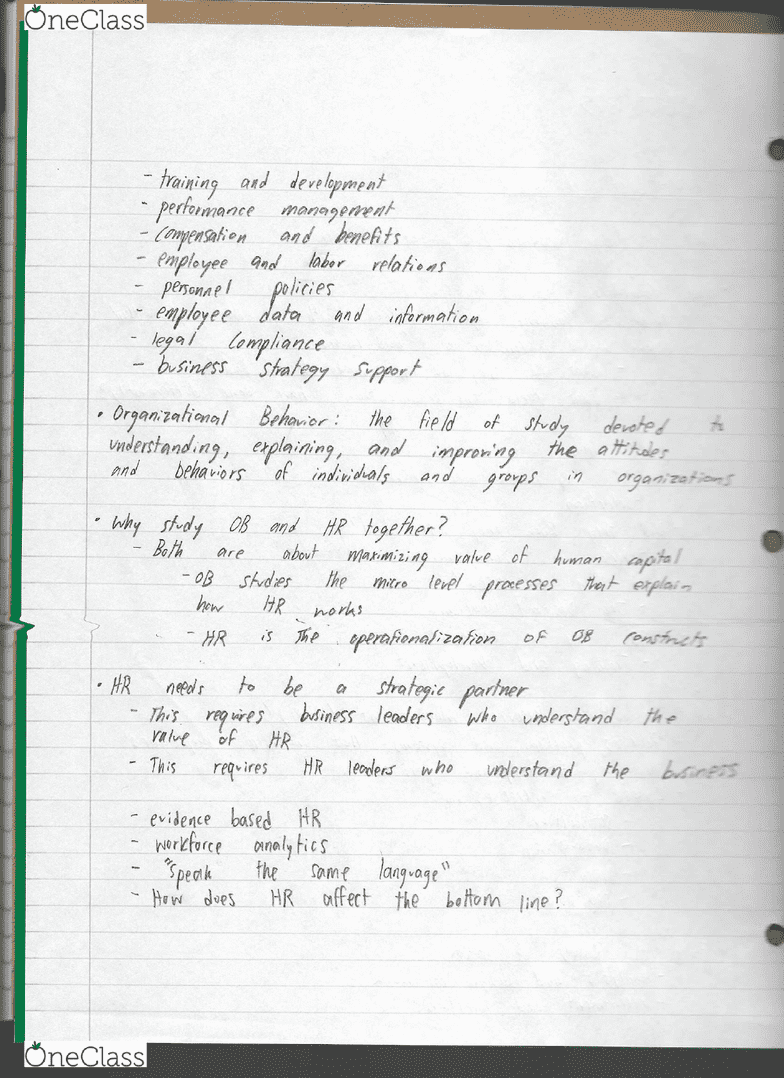 OneClass
- training and development
- performance management
- compensation and benefits
- employee and labor relations
- personnel policies
- employee data and information
- legal compliance
- business strategy support
• Organizational Behavior: the field of study devoted to
understanding, explaining, and improving the attitudes
and behaviors of individuals and groups in organizations
• Why study OB and HR together?
- Both are about maximizing value of human capital
- OB studies the micro level processes that explain
how HR works
- HR is the operationalization of OB constructs
• HR needs to be a strategic partner
- This requires business leaders who understand the
value of HR
- This requires HR leaders who understand the business
- evidence based HR
- workforce analytics
- "speak the same language"
- How does HR affect the bottom line?
OneClass